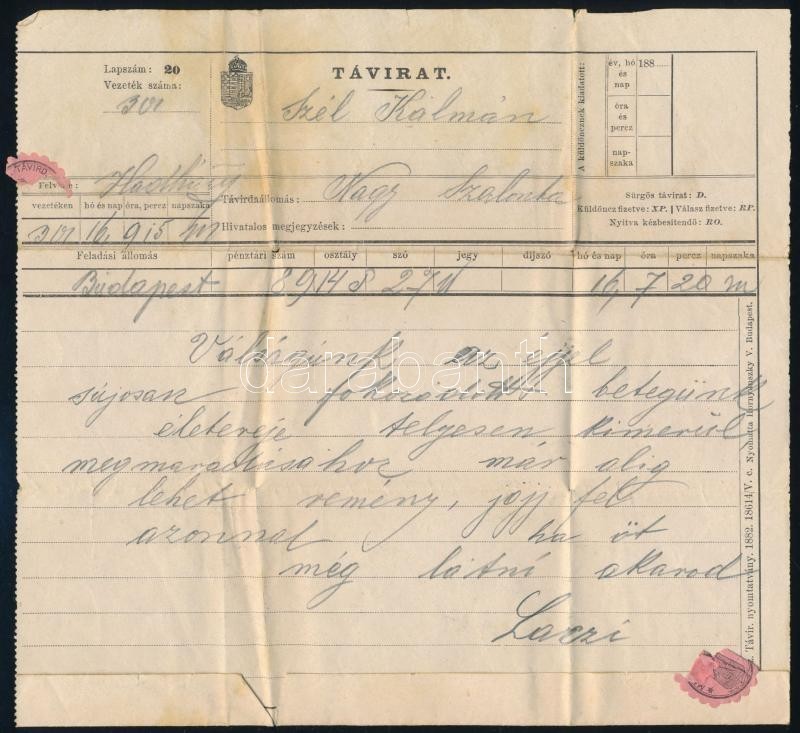 Lapszám: 20
Vezeték száma:
301
TÁVIRAT.
Szél Kálmán
A küldöncznek kiadatott:
év, hó és nap
188
óra és percz
napszaka
TÁVIRD.
Felv
Távirdaállomás: Nagy Szalonta
Hivatalos megjegyzések:
Sürgős távirat: D.
Küldöncz fizetve: XP. | Válasz fizetve: RP.
Nyitva kézbesítendő: RO.
vezetéken hó és nap óra, percz napszaka
301 16 9 15
Feladási állomás pénztári szám osztály szó jegy díjszó hó és nap óra percz napszaka
Budapest 8914 8 27 16 7 20 m
Válságunk az éjjel
sájosan fokozódott betegünk
életereje telyesen kimerül,
megmaradásához már alig
lehet remény, jöjj fel
azonnal ha öt
még látni akarod
Laczi
darabanth
Távir. nyomtatvány. 1882. 18614/V. c. Nyomatta Hornyánszky V. Budapest.